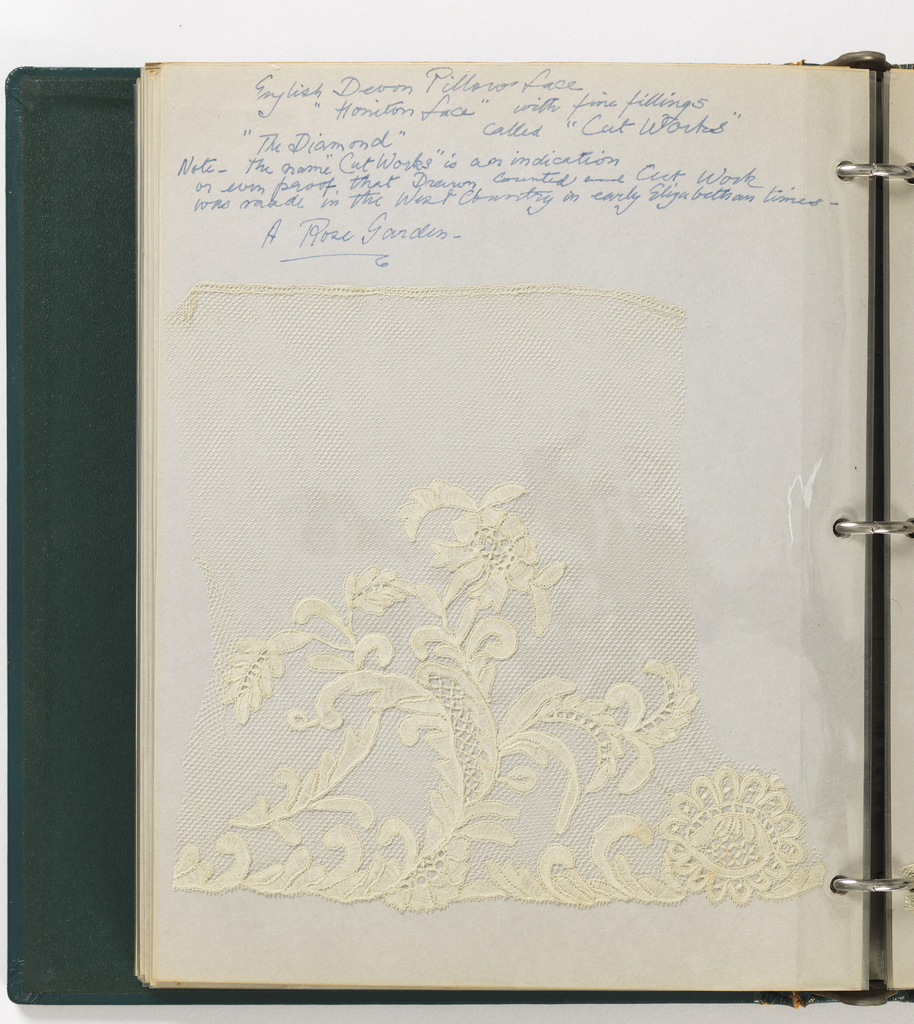 English Devon Pillow Lace
"Honiton Lace" with fine fillings
"The Diamond" called "Cut Works"
Note - The name "Cut Works" is an indication
or even proof that Drawn counted and Cut Work
was made in the West Country in early Elizabethan times -
A Rose Garden -